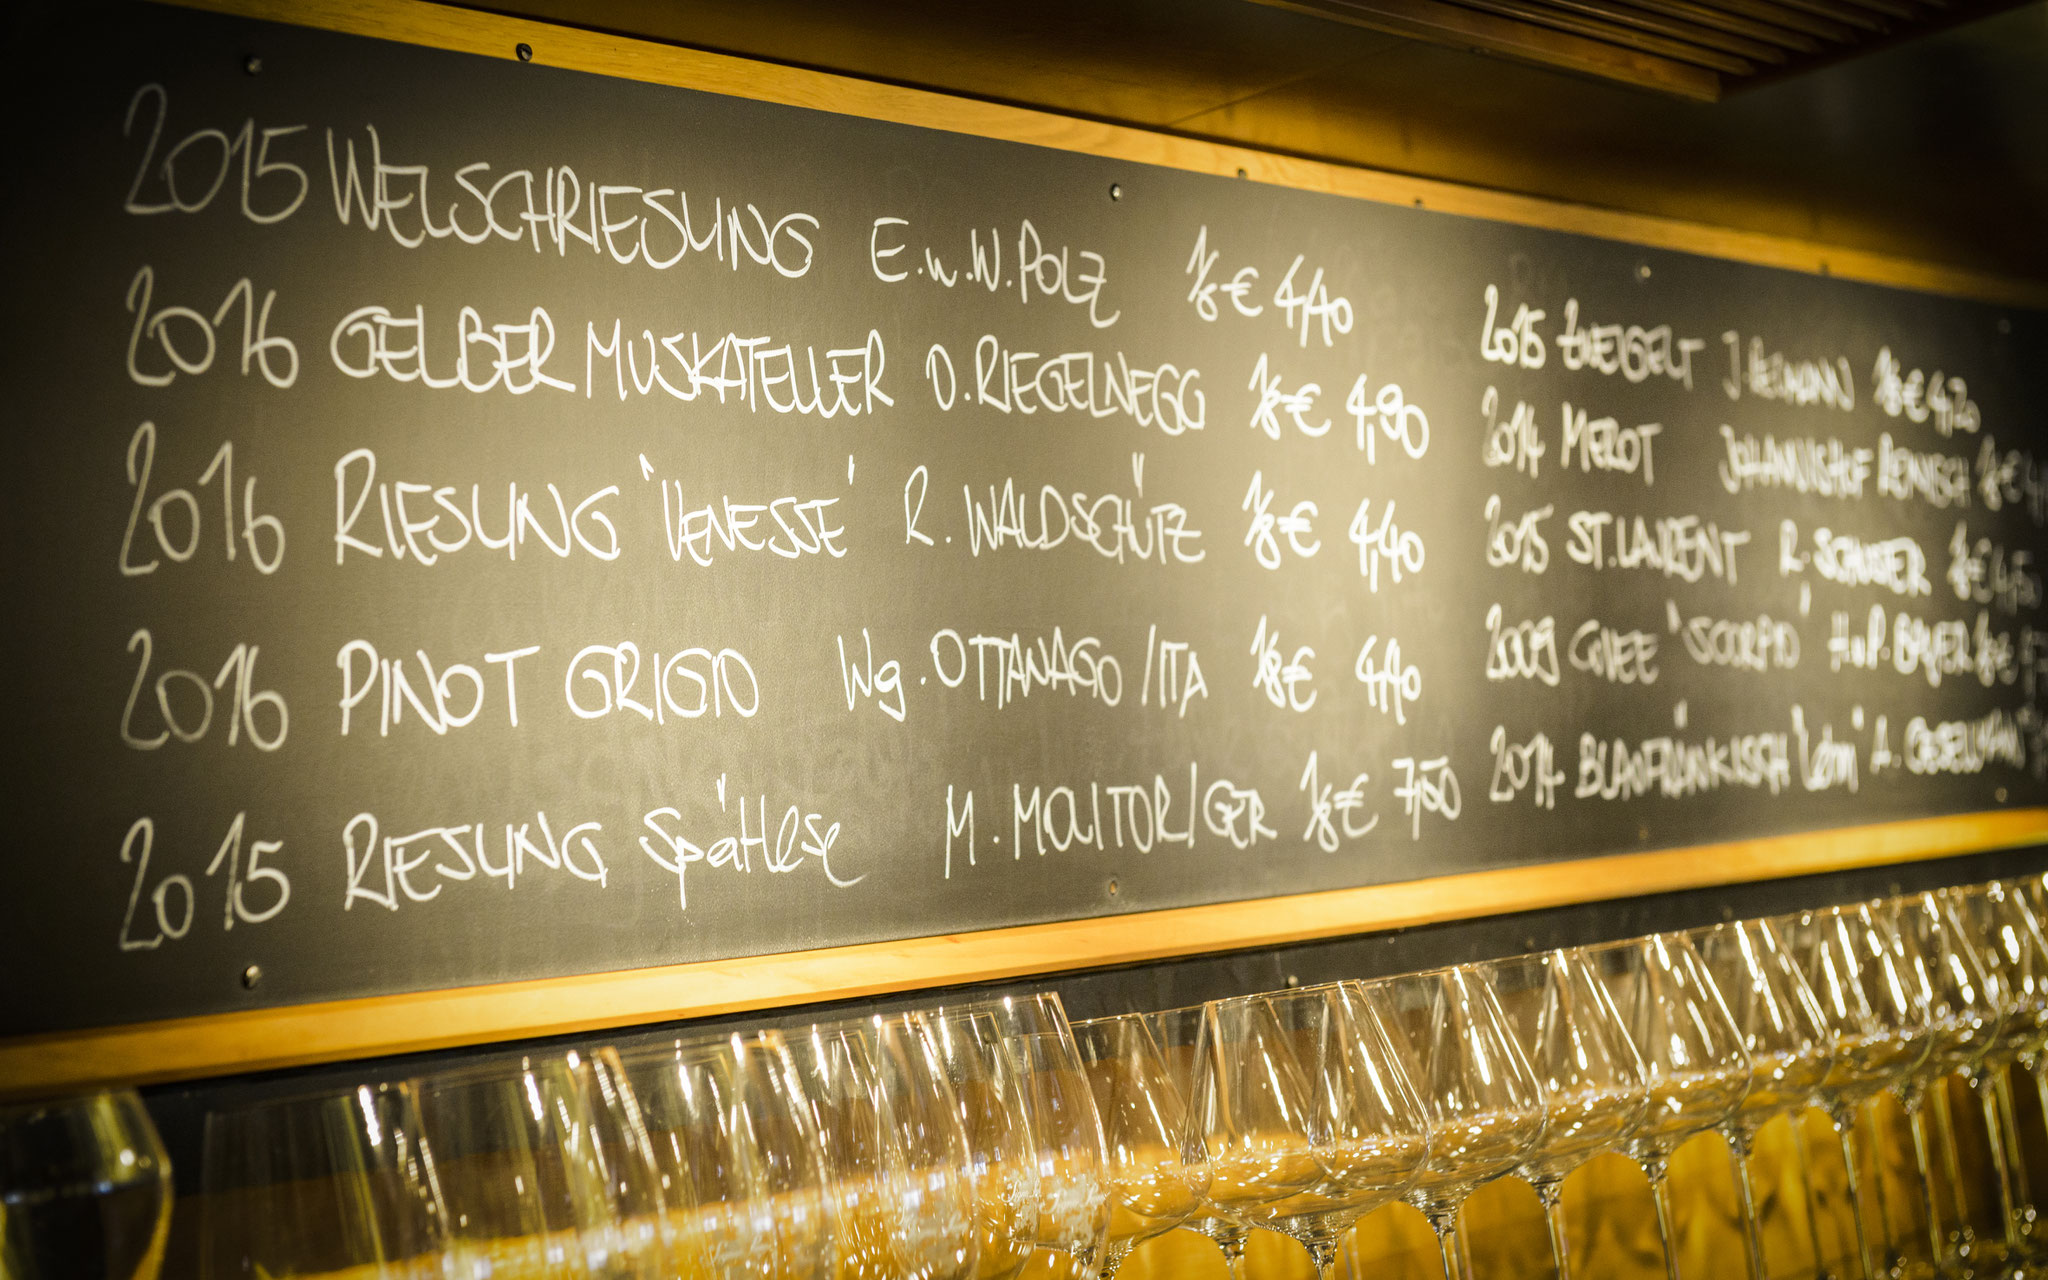 2015 WELSCHRIESLING E.u.W. POLZ 1/8 € 4,40
2016 GELBER MUSKATELLER D. RIEGELNEGG 1/8 € 4,90
2016 RIESLING "VENESSE" R. WALDSCHÜTZ 1/8 € 4,40
2016 PINOT GRIGIO Wg. OTTANAGO/ITA 1/8 € 4,40
2015 RIESLING Spätlese M. MOLITOR/GER 1/8 € 7,50
2015 ZWEIGELT J. 1/8 € 4,20
2014 MERLOT JOHANNISHOF REINISCH 1/8 €
2015 ST. LAURENT R. SCHUSTER 1/8 € 4,50
2009 CUVEE "SCORPIO" H.u.P. BAYER 1/8 €
2014 BLAUFRÄNKISCH A. GESELLMANN